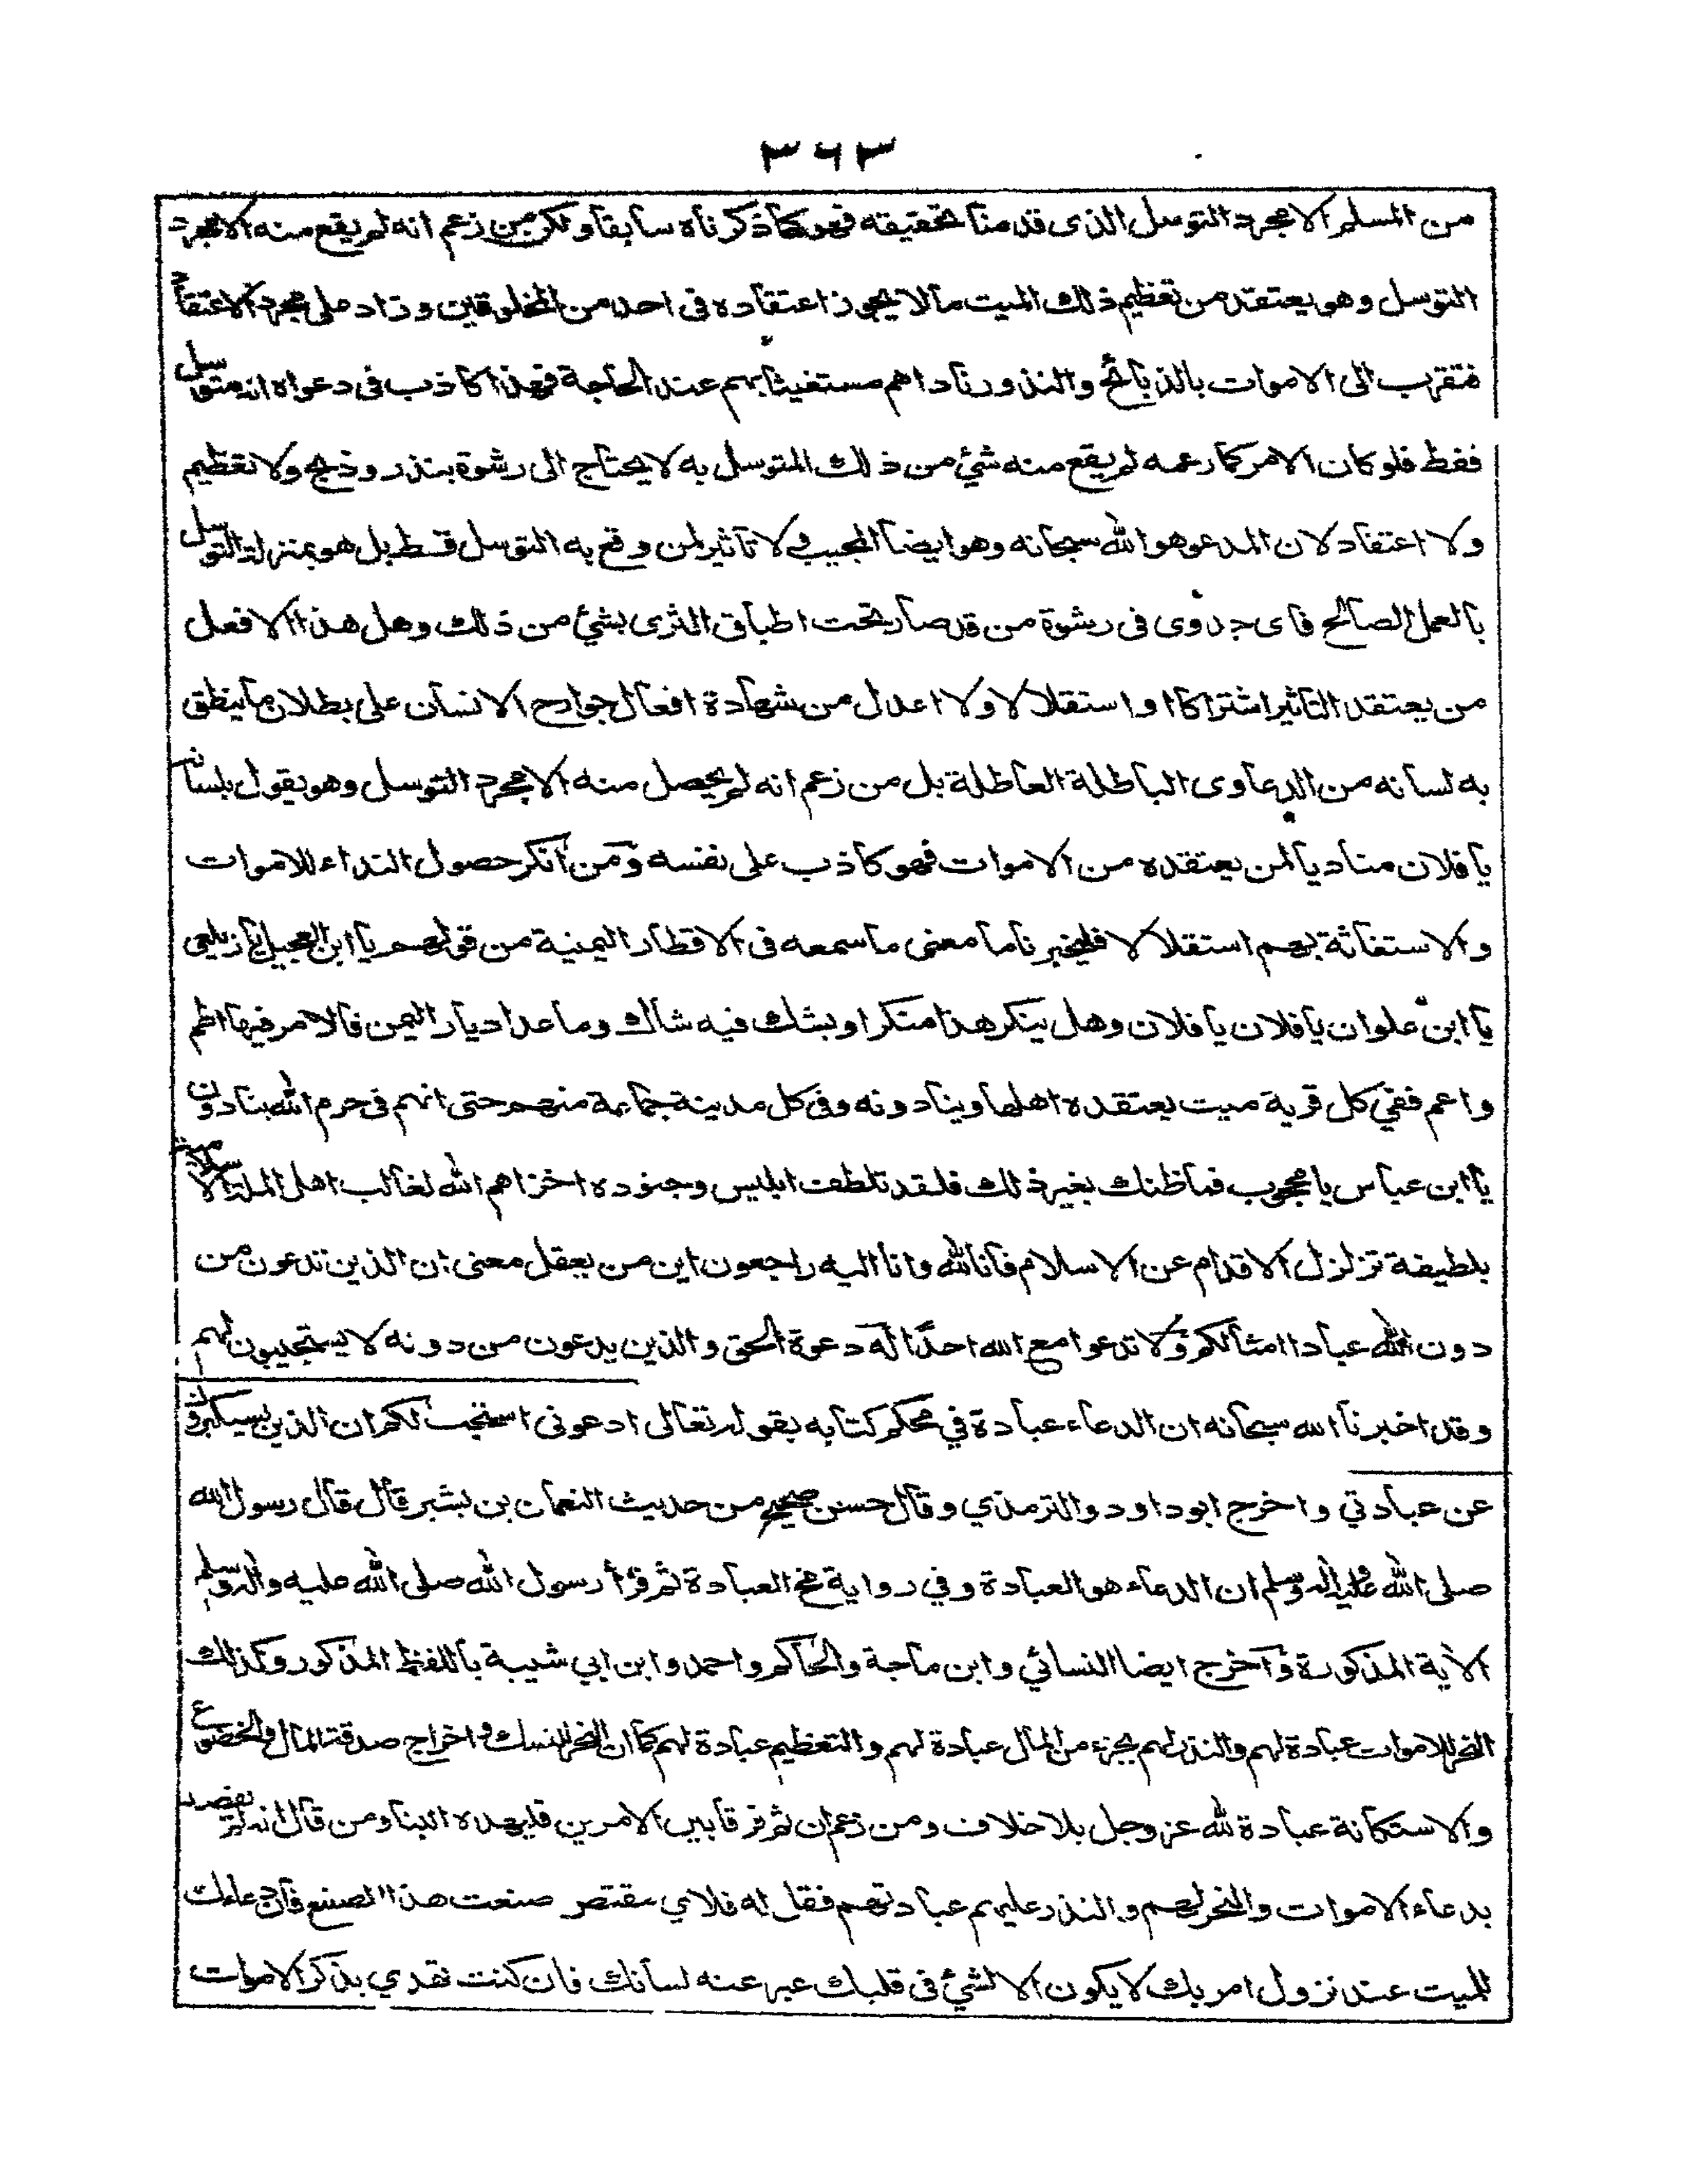 ٣٦٣
من المسلم الا مجرد التوسل الذى قد منا تحقيقه فهو كما ذكرناه سابقا ولكن من زعم انه لم يقع منه الا مجرد
التوسل وهو يعتقد من تعظيم ذلك الميت مالا يجوز اعتقاده فى احد من المخلوقين وزاد على مجرد الاعتقاد
فتقرب الى الاموات بالذبائح والنذور وناداهم مستغيثا بهم عند الحاجة فهذا كاذب فى دعواه انه متوسل
فقط فلو كان الامر كما زعمه لم يقع منه شئ من ذلك المتوسل به لا يحتاج الى رشوة بنذر وذبح ولا تعظيم
ولا اعتقاد لان المدعو هو الله سبحانه وهو ايضا المجيب ولا تاثير لمن وقع به التوسل قط بل هو بمنزلة التوسل
بالعمل الصالح فاى جدوى فى رشوة من قد صار تحت اطباق الثرى بشئ من ذلك وهل هذا الا فعل
من يعتقد التاثير اشتراكا او استقلالا ولا اعدل من شهادة افعال جوارح الانسان على بطلان ما ينطق
به لسانه من الدعاوى الباطلة العاطلة بل من زعم انه لم يحصل منه الا مجرد التوسل وهو يقول بلسانه
يا فلان مناديا لمن يعتقده من الاموات فهو كاذب على نفسه ومن انكر حصول النداء للاموات
والاستغاثة بهم استقلالا فليخبرنا ما معنى ما سمعه فى الاقطار اليمنية من قولهم يا ابن العجيل يا زيلعى
يا ابن علوان يا فلان يا فلان وهل ينكر هذا منكر او يشك فيه شاك وما عدا ديار اليمن فالامر فيها اطم
واعم ففي كل قرية ميت يعتقده اهلها وينادونه وفى كل مدينة جماعة منهم حتى انهم فى حرم الله ينادون
يا ابن عباس يا محجوب فما ظنك بغير ذلك فلقد تلطف ابليس وجنوده اخزاهم الله لغالب اهل الملة الاسلامية
بلطيفة تزلزل الاقدام عن الاسلام فانا لله وانا اليه راجعون اين من يعقل معنى ان الذين تدعون من
دون الله عباد امثالكم ولا تدعوا مع الله احدًا له دعوة الحق والذين يدعون من دونه لا يستجيبون لهم
وقد اخبرنا الله سبحانه ان الدعاء عبادة في محكم كتابه بقوله تعالى ادعونى استجب لكم ان الذين يستكبرون
عن عبادتي واخرج ابو داود والترمذي وقال حسن صحيح من حديث النعمان بن بشير قال قال رسول الله
صلى الله عليه واله وسلم ان الدعاء هو العبادة وفي رواية مخ العبادة ثم قرأ رسول الله صلى الله عليه واله وسلم
الاية المذكورة واخرج ايضا النسائي وابن ماجة والحاكم واحمد وابن ابي شيبة باللفظ المذكور وكذلك
النحر للاموات عبادة لهم والنذر لهم بجزء من المال عبادة لهم والتعظيم عبادة لهم كما ان النحر للنسك واخراج صدقة المال والخضوع
والاستكانة عبادة لله عز وجل بلا خلاف ومن زعم ان ثم فرقا بين الامرين فليهده الينا ومن قال انه لم يقصد
بدعاء الاموات والنحر لهم والنذر عليهم عبادتهم فقل له فلاي مقتض صنعت هذا الصنيع فان دعاءك
للميت عند نزول امر بك لا يكون الا لشئ فى قلبك عبر عنه لسانك فان كنت تهذي بذكر الاموات